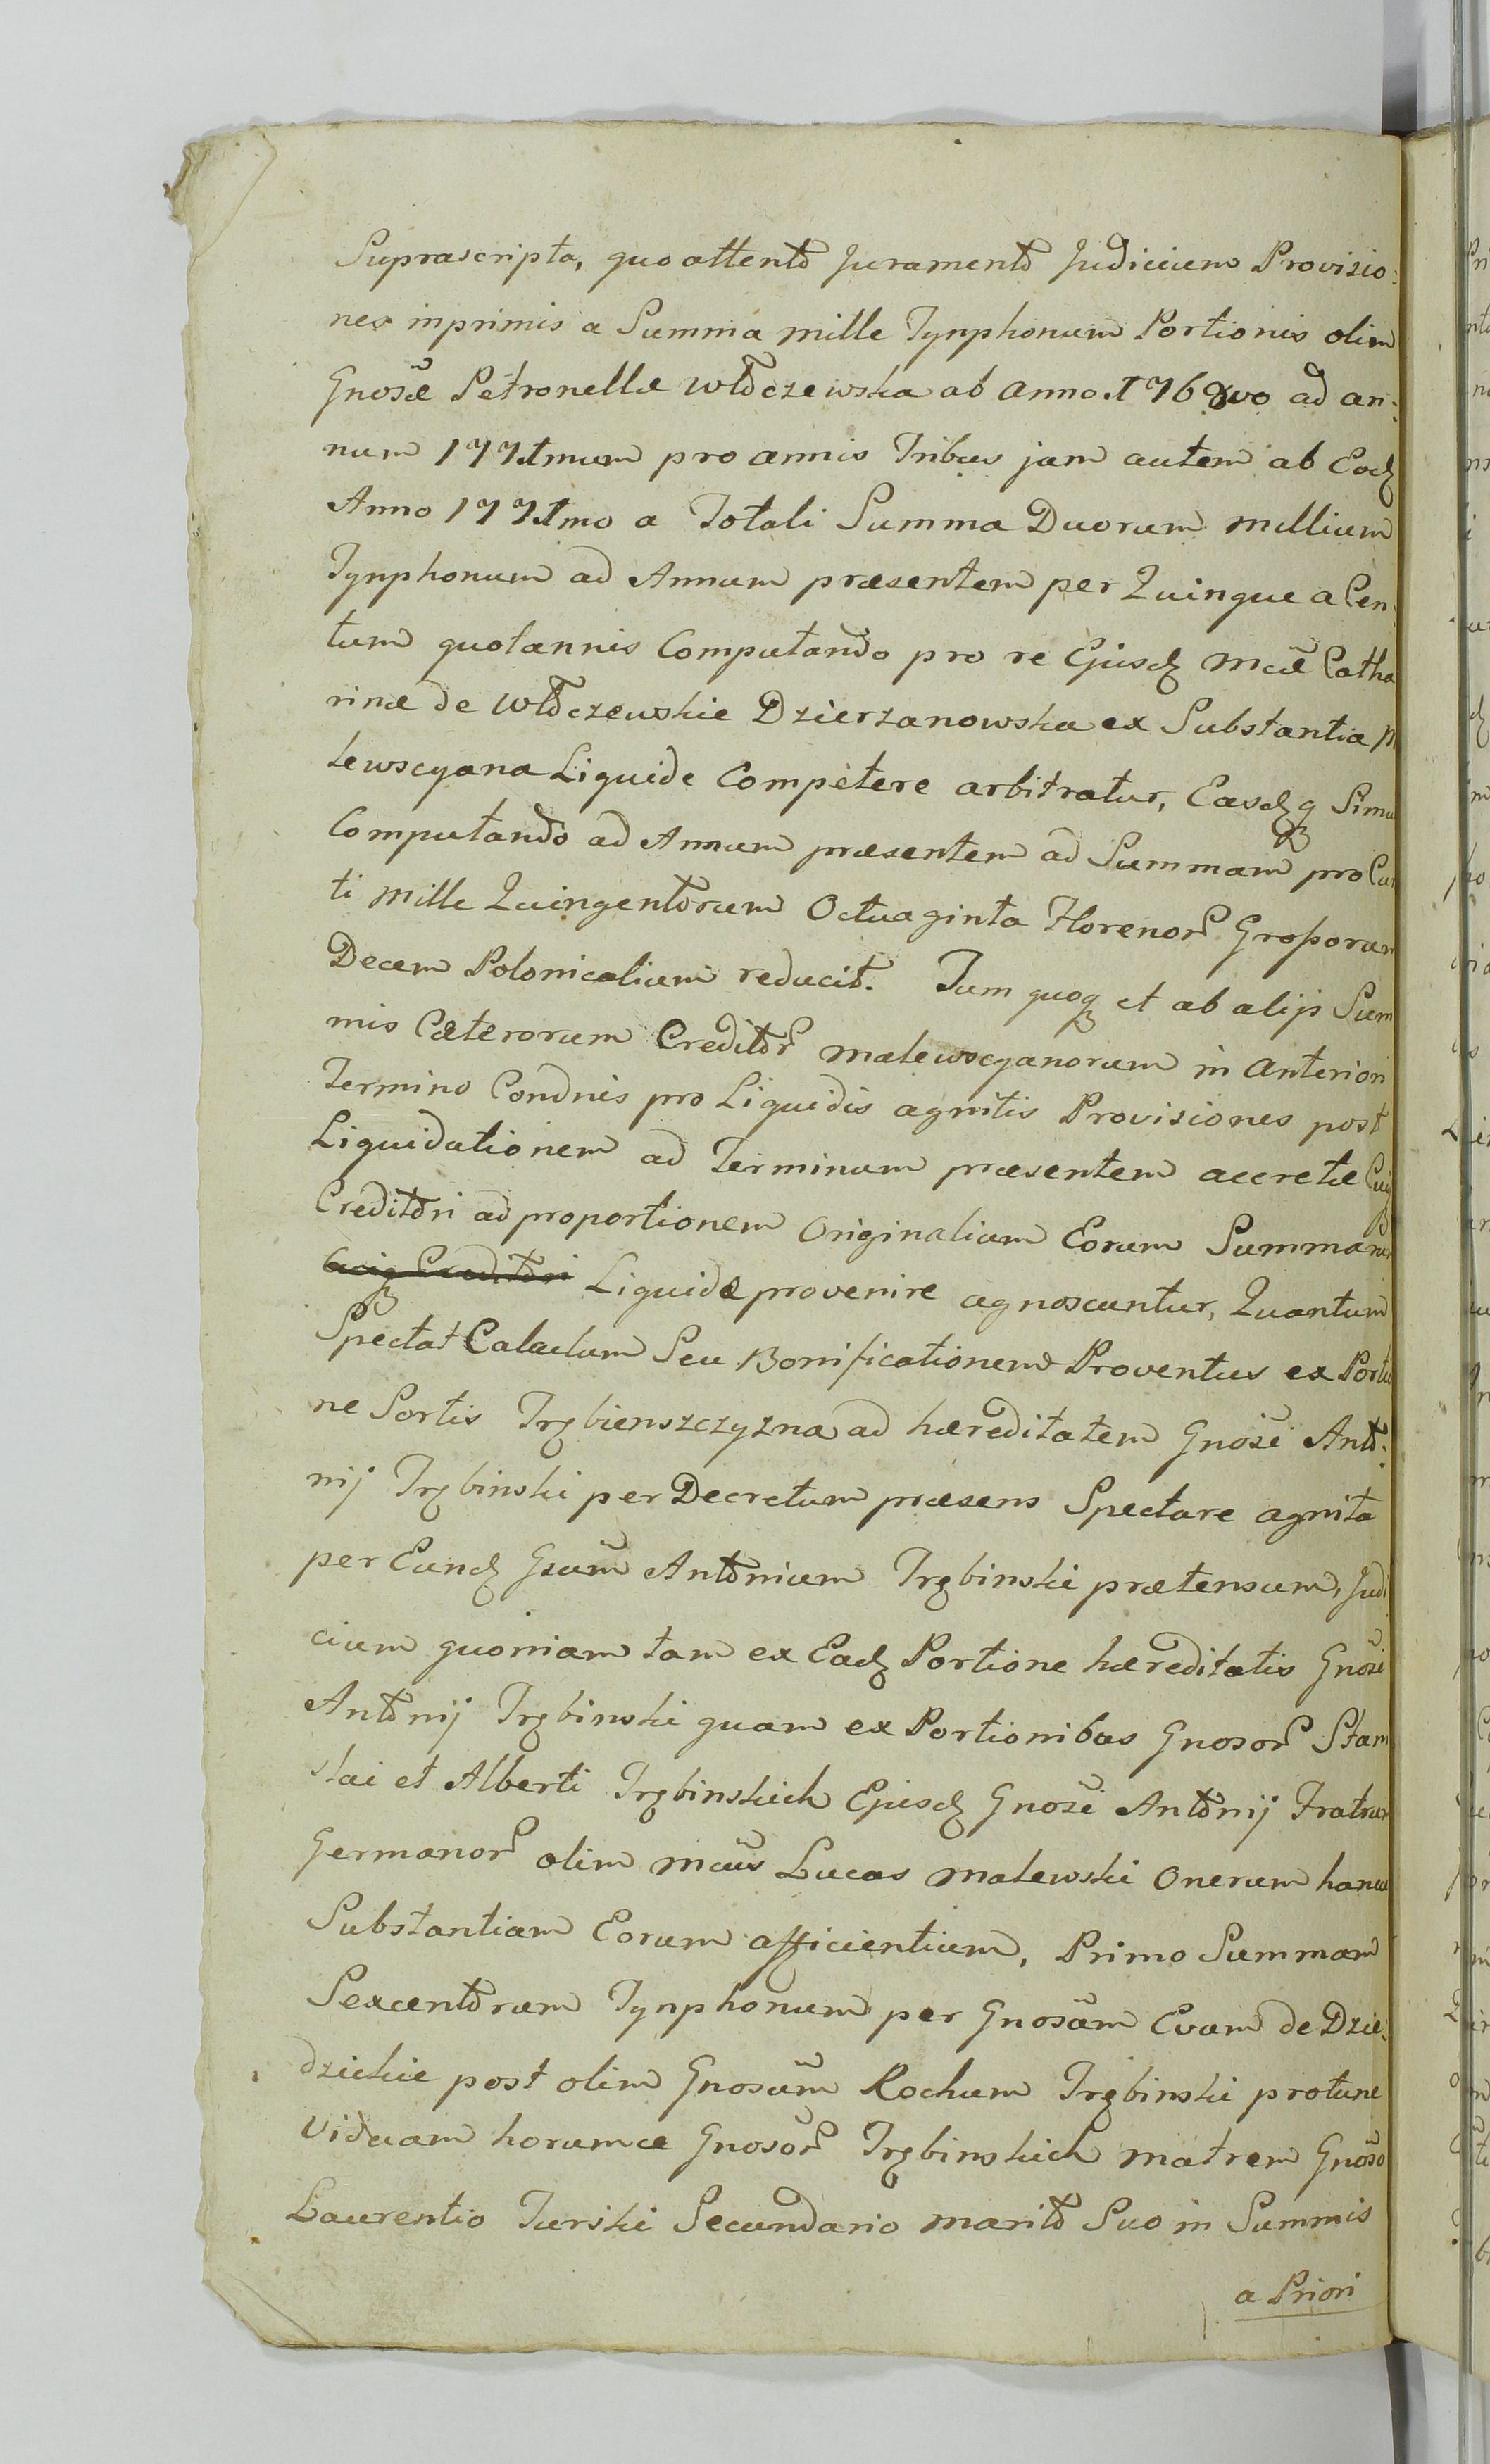 Suprascripta, quo attento Juramento Judicium Provisio:
nes inprimis a Summa mille Tynphonum Portionis olim
Gnosæ Petronellæ Włoczewska ab anno 1768vo ad an:
num 1771mum pro annis Tribus jam autem ab Eod
Anno 1771mo a Totali Summa Duorum millium
Tynphonum ad Annum præsentem per Quinque a Cen
tum quotannis Computando pro re Ejusd Mcæ Catha
rinæ de Włoczewskie Dzierzanowska ex Substantia M
lewscyana Liquide Competere arbitratur, Easdq Simu
Computando ad Annum præsentem ad Summam pro
ti Mille Quingentorum Octuaginta Florenor Grossorum
Decem Polonicalium reducit. Tum quoq et ab alijs Sum
mis Cæterorum Creditor malewscyanorum in anteriori
Termino Condnis pro Liquidis agnitis Provisiones post
Liquidationem ad Terminum præsentem accretæ Cuiq
Creditori ad proportionem Originalium Eorum Summarum
Cuiq Creditori Liquidæ provenire agnoscuntur, Quantum
Spectat Calculum Seu Bonificationem Proventus ex Portio
ne Sortis Trzbienszczyzna ad hæreditatem Gnosi Anto:
nij Trzbinski per Decretum præsens Spectare agnita
per Eund Gsum Antonium Trzbinski prætensum, Judi
cium quoniam tam ex Ead Portione hæreditatis Gnosi
Antonij Trzbinski quam ex Portionibus Gnosor Stani
slai et Alberti Trzbinskich Ejusd Gnosi Antonij Fratrum
Germanor olim Mcus Lucas Malewski Onerum hance
Substantiam Eorum afficientium, Primo Summam
Sexcentorum Tynphonum per Gnosam Evam de Dzie:
dzickie post olim Gnosum Rochum Trzbinski protunc
Viduam horumce Gnosor Trzbinskich matrem Gnoso
Laurentio Turski Secundario marito Suo in Summis
a Priori